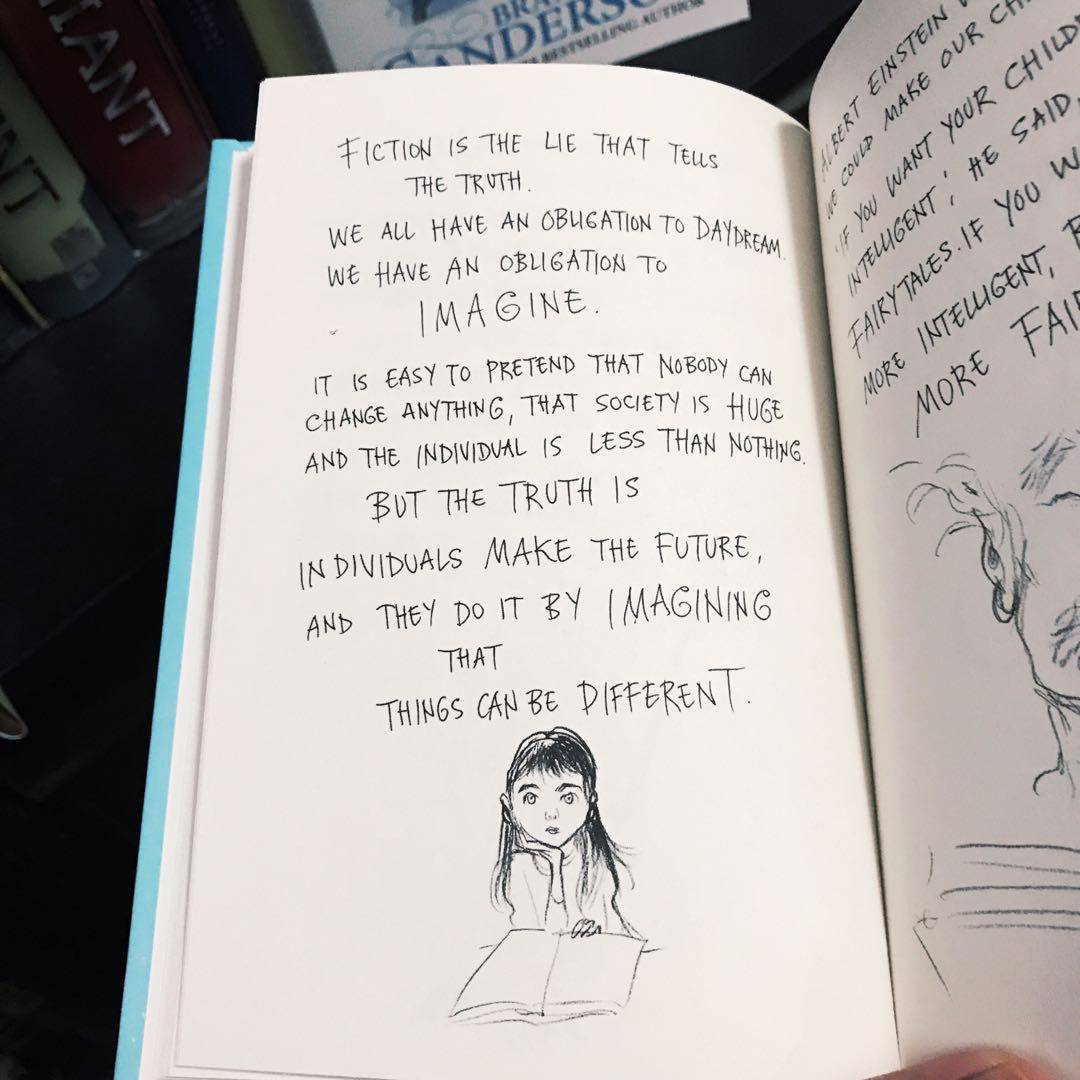 FICTION IS THE LIE THAT TELLS
THE TRUTH.
WE ALL HAVE AN OBLIGATION TO DAYDREAM.
WE HAVE AN OBLIGATION TO
IMAGINE.
IT IS EASY TO PRETEND THAT NOBODY CAN
CHANGE ANYTHING, THAT SOCIETY IS HUGE
AND THE INDIVIDUAL IS LESS THAN NOTHING.
BUT THE TRUTH IS
INDIVIDUALS MAKE THE FUTURE,
AND THEY DO IT BY IMAGINING
THAT
THINGS CAN BE DIFFERENT.
ALBERT EINSTEIN
WE COULD MAKE OUR
'IF YOU WANT YOUR
INTELLIGENT', HE SAID,
FAIRYTALES. IF YOU
MORE INTELLIGENT,
MORE
BESTSELLING AUTHOR